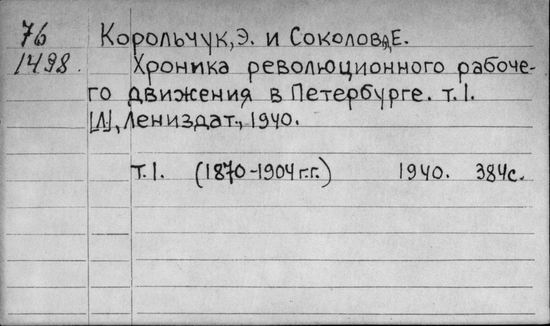 76 Корольчук, Э. и Соколова, Е.
1498. Хроника революционного рабоче-
го движения в Петербурге. т. I.
[Л], Лениздат., 1940.
т. I. (1870-1904 г.г.) 1940. 384с.